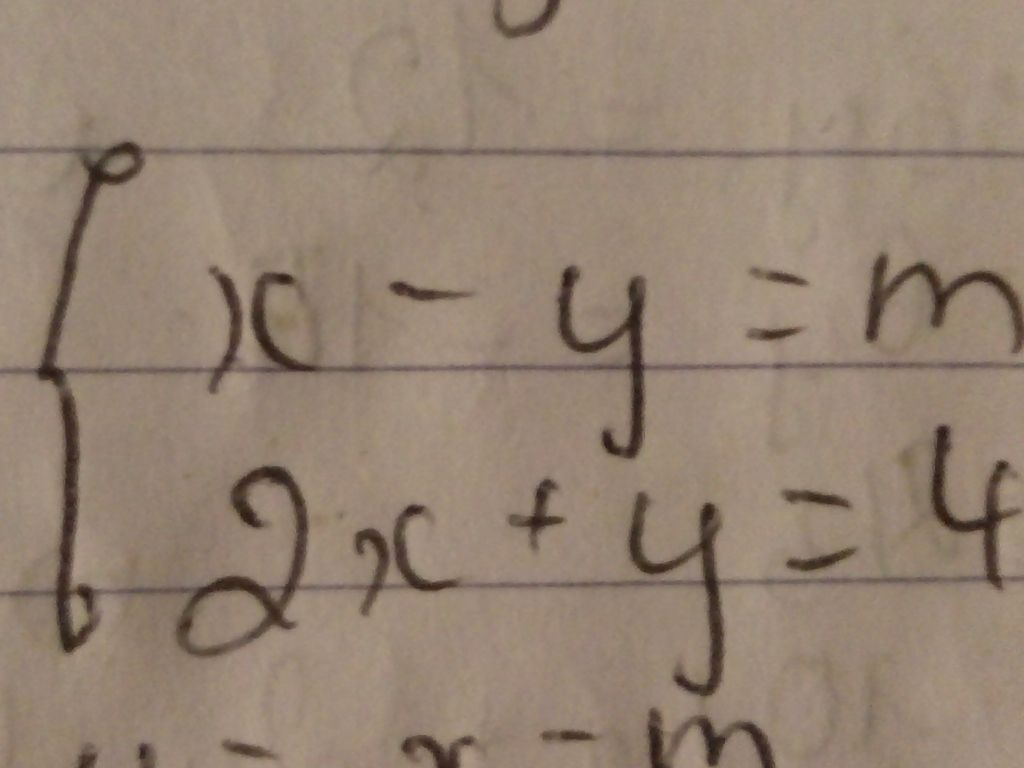 x - y = m
2x + y = 4
y = x - m